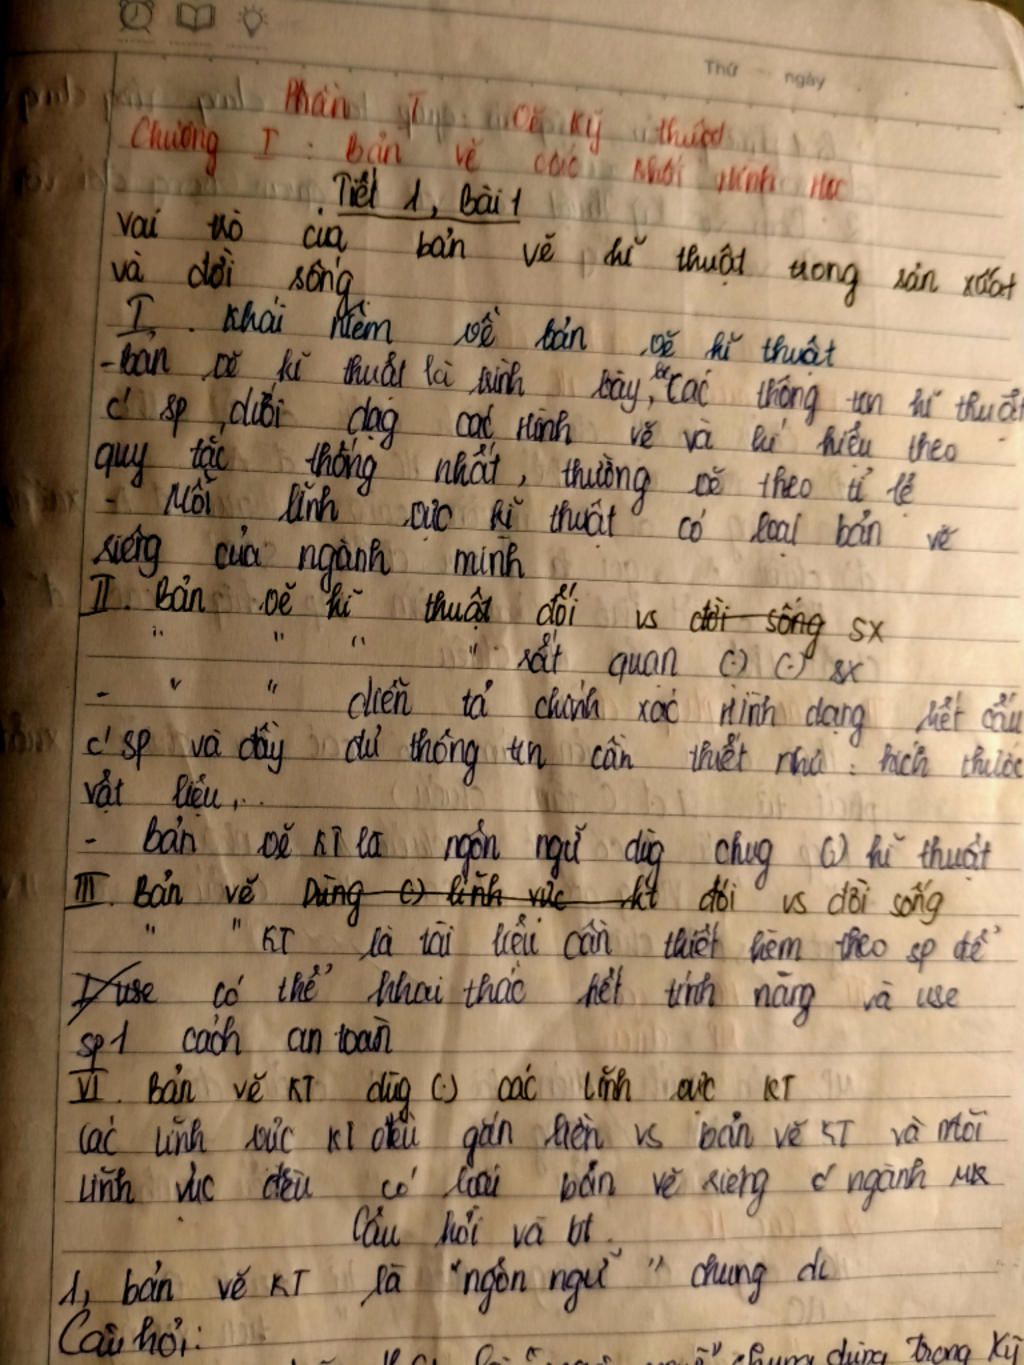 Thứ ngày
Phần I : Vẽ Kỹ thuật
Chương I : Bản vẽ các khối hình học
Tiết 1, Bài 1
vai trò của bản vẽ kĩ thuật trong sản xuất
và đời sống
I. Khái niệm về bản vẽ kĩ thuật
- bản vẽ kĩ thuật là trình bày, các thông tin kĩ thuật
c' sp dưới dạg các hình vẽ và kí hiệu theo
quy tắc thống nhất, thường vẽ theo tỉ lệ
- Mỗi lĩnh vực kĩ thuật có loại bản vẽ
riêng của ngành mình
II. Bản vẽ kĩ thuật đối vs đời sống sx
" " " " rất quan (.) (.) sx
- " " diễn tả chính xác hình dạng kết cấu
c' sp và đầy đủ thông tin cần thiết như : kích thước
vật liệu,..
- bản vẽ KT là ngôn ngữ dùg chug (.) kĩ thuật
III. Bản vẽ Dùng (.) lĩnh vực kt đối vs đời sống
" " KT là tài liệu cần thiết kèm theo sp để
use có thể khai thác hết tính năng và use
sp 1 cách an toàn
VI. Bản vẽ KT dùg (.) các lĩnh vực KT
Các lĩnh vực KT đều gắn liền vs bản vẽ KT và mỗi
lĩnh vực đều có loại bản vẽ riêng c' ngành
Câu hỏi và bt.
1, bản vẽ KT là "ngôn ngữ" chung
Câu hỏi:
chung dùng trong Kỹ